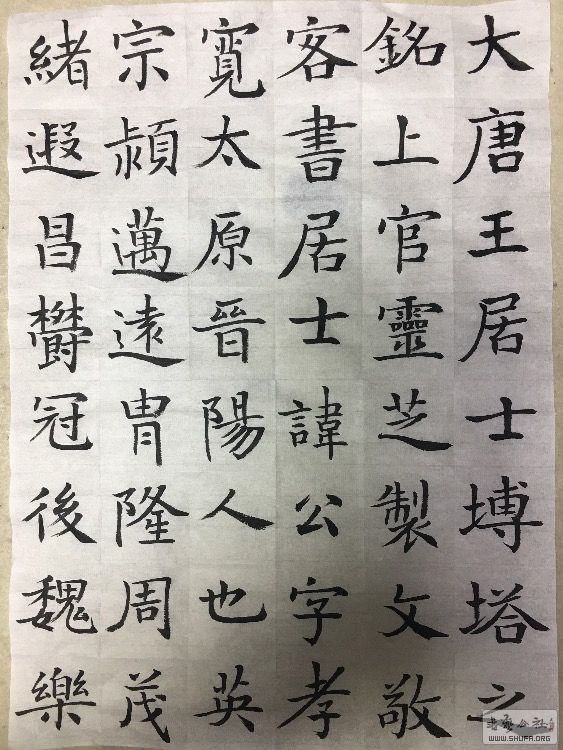 大唐王居士塼塔之
銘上官靈芝製文敬
客書居士諱公字孝
寬太原晉陽人也英
宗熲邁遠胄隆周茂
緒遐昌欝冠後魏樂
書藝公社
WWW.SHUFA.ORG